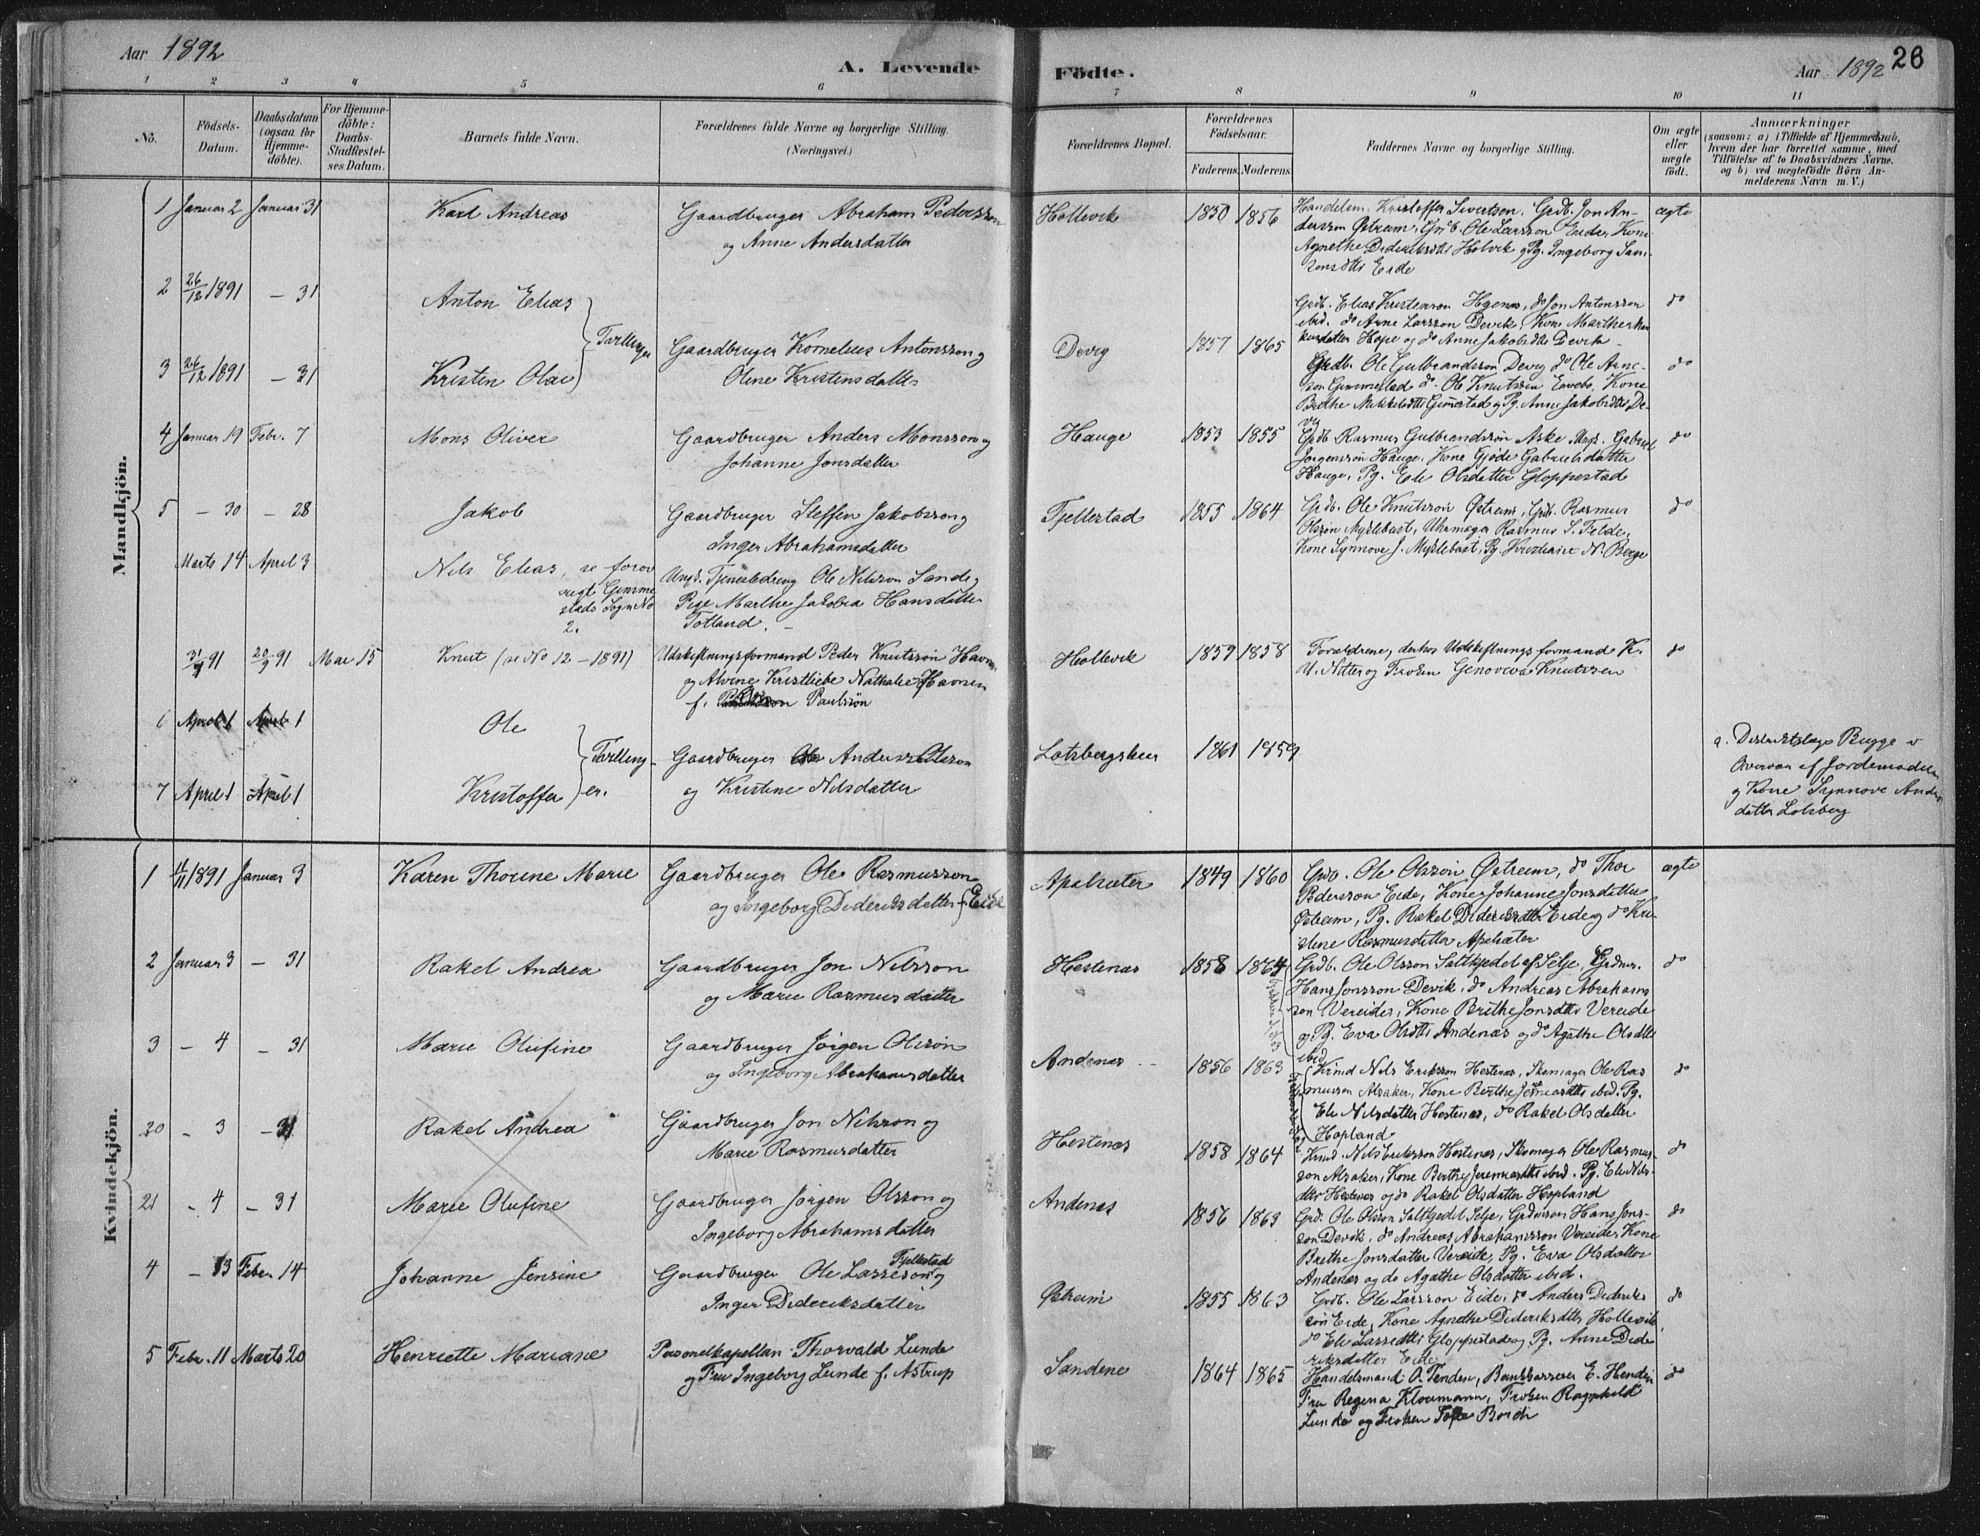 Aar 1892
A. Levende
Födte.
Aar 1892
26
1 2 3 4 5 6 7 8 9 10 11
No.
Födsels-
Datum.
Daabsdatum
(ogsaa for
Hjemme-
döbte).
For Hjemme-
döbte:
Daabs-
Stadfæstel-
ses Datum.
Barnets fulde Navn.
Forældrenes fulde Navne og borgerlige Stilling.
(Næringsvei.)
Forældrenes Bopæl.
Forældrenes
Födselsaar.
Faderens. Moderens.
Faddernes Navne og borgerlige Stilling.
Om ægte
eller
uægte
födt.
Anmærkninger
(saasom: a) i Tilfælde af Hjemmedaab,
hvem der har forrettet samme, med
Tilföielse af to Daabsvidners Navne.
og b) ved uægtefödte Börn An-
melderens Navn m. V.)
Mandkjön.
1 Januar 2 Januar 31 Karl Andreas Gaardbruger Abraham Pedersson
og Anne Andersdatter
Hollevik 1850 1856
Handelsm. Kristoffer Sivertson, Grdb. Jon An-
dersson Østrem, Grdb. Ole Larsson Eide, Kone
Agnethe Dideriksdtr Holvik, Pg. Ingeborg
Eide
ægte
2 26/12 1891 – 31 Anton Elias
Tvillinger
Grdb. Elias Kristensson Hgenes, do Jon Antonsson
ibid. do Arne Larsson Devik, Kone Marthe
datter Hope og do Anne Jakobsdtr Devik
do
Gaardbruger Kornelius Antonsson og
Oline Kristensdatter
Devig 1857 1865
3 26/12 1891 – 31 Kristen Olai
Grdb. Ole Gulbrandsson Devig do Ole Arne-
son Gimmestad do. Ole Knutsson Evebø, Kone
Brithe Mikkelsdtr Gimestad og Pg. Anne Jakobsdtr De-
vig
do
4 Januar 19 Febr. 7 Mons Oliver Gaardbruger Anders Monsson og
Johanne Jonsdatter
Hauge 1853 1855
Grdb. Rasmus Gulbrandssøn Aske Ungk. Gabriel
Jørgenssøn Hauge, Kone Gjøde Gabrielsdatter
Hauge, Pg. Eli Olsdatter Gloppestad
do
5 – 30 – 28 Jakob Gaardbruger Steffen Jakobsson og
Inger Abrahamsdatter
Fjellestad 1855 1864
Grdb. Ole Knutssøn Østrem, Grdb. Rasmus
Olssøn Myklebust, Uhrmager Rasmus S. Felde,
Kone Synnøve J. Myklebust, Pg. Kristiane N. Berge
do
Marts 14 April 3 Nils Elias, se forov
rigt Gimme
stads Sogn No
2.
Ungk. Tjenestedreng Ole Nilsson Sande og
Pige Marthe Jakobea Hansdatter
Totland.
31/7 91 20/9 91 Mai 15 Knut (se No 12 – 1891) Udskiftningsformand Peder Knutssøn Havnen
og Alvine Kristliebe Nathalie Havnen
f. Paulssøn
Hollevik 1859 1858
Forældrene, derhos Udskiftningsformand K.
U. Nitter og Frøken Genoveva Knutssen
do
6 April 1 April 1 Ole
Tvilling-
er.
Gaardbruger Anders Olsson
og Kristine Nilsdatter
Lotsbergskar 1861 1859
a. Distriktslæge Bugge i
Overvær af Jordemoderen
og Kone Synnøve Anders
datter Lotsberg
7 April 1 April 1 Kristoffer
Kvindekjön.
1 4/11 1891 Januar 3 Karen Thorine Marie Gaardbruger Ole Rasmusson
og Ingeborg Dideriksdatter f. Eide
Apalsæter 1849 1860
Grdb. Ole Olssøn Østrem, do Thor
Pedersson Eide, Kone Johanne Jonsdatter
Østrem, Pg. Rakel Dideriksdtr Eide og do Kri-
stine Rasmusdatter Apalsæter
ægte
2 Januar 3 – 31 Rakel Andrea Gaardbruger Jon Nilsson
og Marie Rasmusdatter
Hestenæs 1858 1864
Grdb. Ole Olsson Saltkjedel af Selje, Grdmr.
Hans Jonsson Devik, do Andreas Abrahams
son Vereide, Kone Brithe Jonsdtr Vereide
og Pg. Eva Olsdtr Andenæs og do Agathe Olsdtr
ibid
do
3 – 4 – 31 Marie Olufine Gaardbruger Jörgen Olssøn
og Ingeborg Abrahamsdatter
Andenæs 1856 1863
Krmd Nils Eriksson Hestenæs, Skomager Ole Ras
musson Alsaker, Kone Berthe Jeremiasdtr ibid. Pg.
Eli Nilsdatter Hestenæs, do Rakel Olsdatter
Hopland
do
20 – 3 – 31 Rakel Andrea Gaardbruger Jon Nilsson og
Marie Rasmusdatter
Hestenæs 1858 1864
Krmd. Nils Eriksson Hestenæs, Skomager Ole Rasmus-
son Alsaker, Kone Berthe Jeremiasdtr ibid. Pg. Eli Nils-
dtr Hestenæs og do Rakel Olsdatter Hopland
do
21 – 4 – 31 Marie Olufine Gaardbruger Jörgen Olsson og
Ingeborg Abrahamsdatter
Andenæs 1856 1863
Grd. Ole Olsson Saltkjedel Selje, Grdmrson Hans Jons-
son Devik, do Andreas Abrahamsson Vereide, Kone
Brithe Jonsdatter Vereide, Pg. Eva Olsdatter
Andenæs og do Agathe Olsdatter ibid.
do
4 – 13 Febr. 14 Johanne Jensine Gaardbruger Ole Larsson Fjellestad og
Inger Dideriksdatter
Østrem 1855 1863
Grdb. Ole Larsson Eide, do Anders Dideriks
søn Eide, Kone Agnethe Dideriksdtr Hollevik,
do Eli Larsdtr Gloppestad og Pg. Anne Dide
riksdatter Eide
do
5 Febr. 11 Marts 20 Henriette Mariane Personelkapellan Thorvald Lunde
og Fru Ingeborg Lunde f. Astrup
Sandene 1864 1865
Handelsmand O. Tenden, Bankkasserer E. Henden
Fru Regina Kloumann, Frøken Ragnhild
Lunde og Frøken Sofie Borch
do